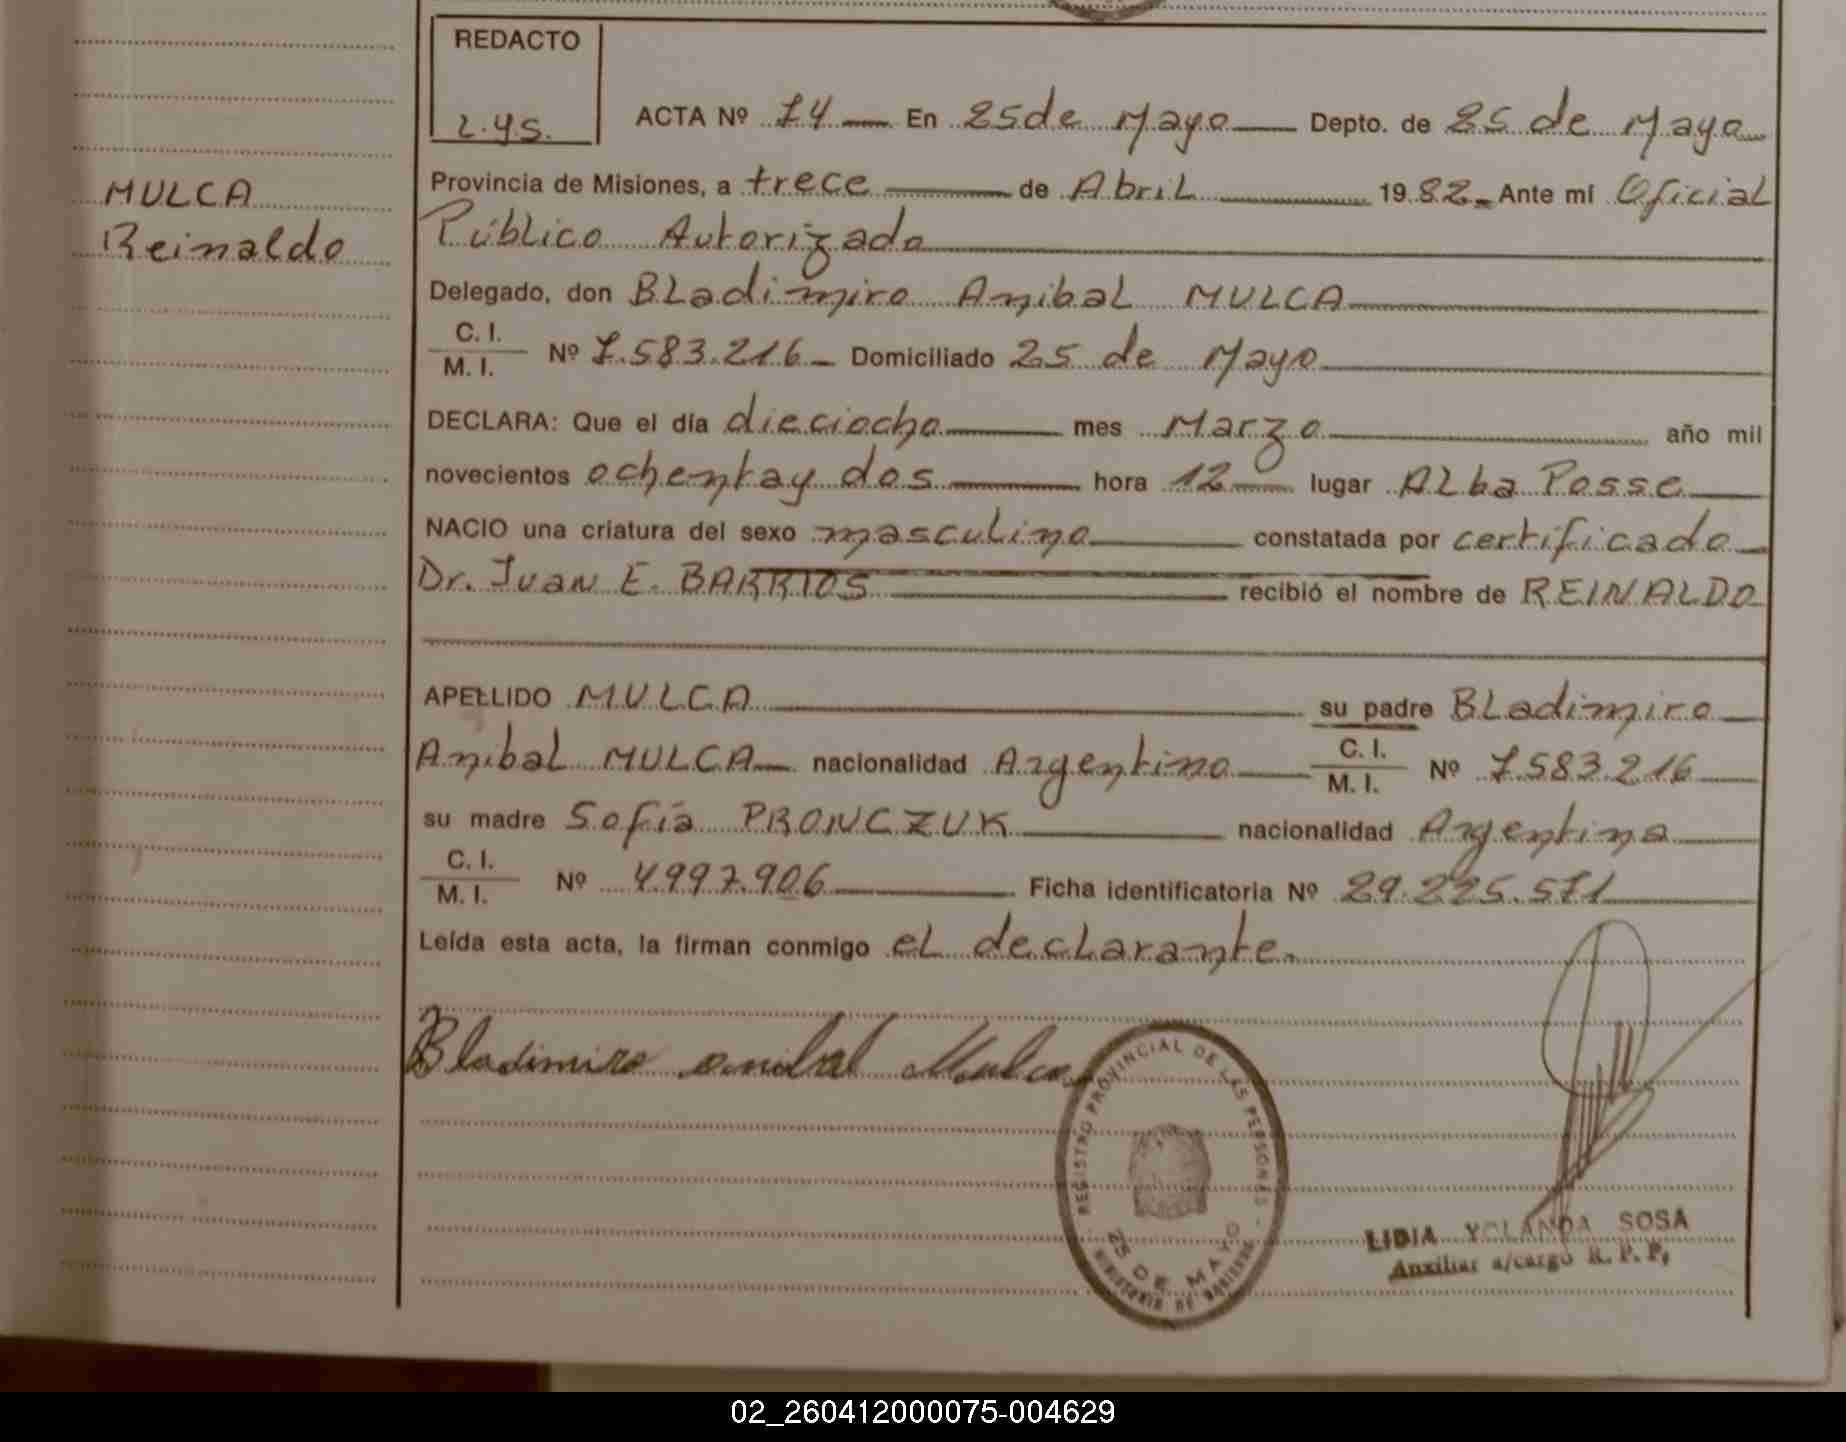 REDACTO
L.Y.S.
ACTA Nº 74 En 25 de Mayo Depto. de 25 de Mayo
MULCA
Reinaldo
Provincia de Misiones, a trece de Abril 1982. Ante mí Oficial
Público Autorizado
Delegado, don Bladimiro Anibal MULCA
C. I.
M. I. Nº 7.583.216 Domiciliado 25 de Mayo
DECLARA: Que el día dieciocho mes Marzo año mil
novecientos ochentay dos hora 12 lugar Alba Posse
NACIO una criatura del sexo masculino constatada por certificado
Dr. Juan E. BARRIOS recibió el nombre de REINALDO
APELLIDO MULCA su padre Bladimiro
Anibal MULCA nacionalidad Argentino C. I. M. I. Nº 7.583.216
su madre Sofía PRONCZUK nacionalidad Argentina
C. I.
M. I. Nº 4.997.906 Ficha identificatoria Nº 29.225.571
Leída esta acta, la firman conmigo el declarante.
Bladimiro anibal Mulca
REGISTRO PROVINCIAL DE LAS PERSONAS
25 DE MAYO
MINISTERIO DE GOBIERNO
LIDIA YOLANDA SOSA
Auxiliar a/cargo R. P. P.
02_260412000075-004629